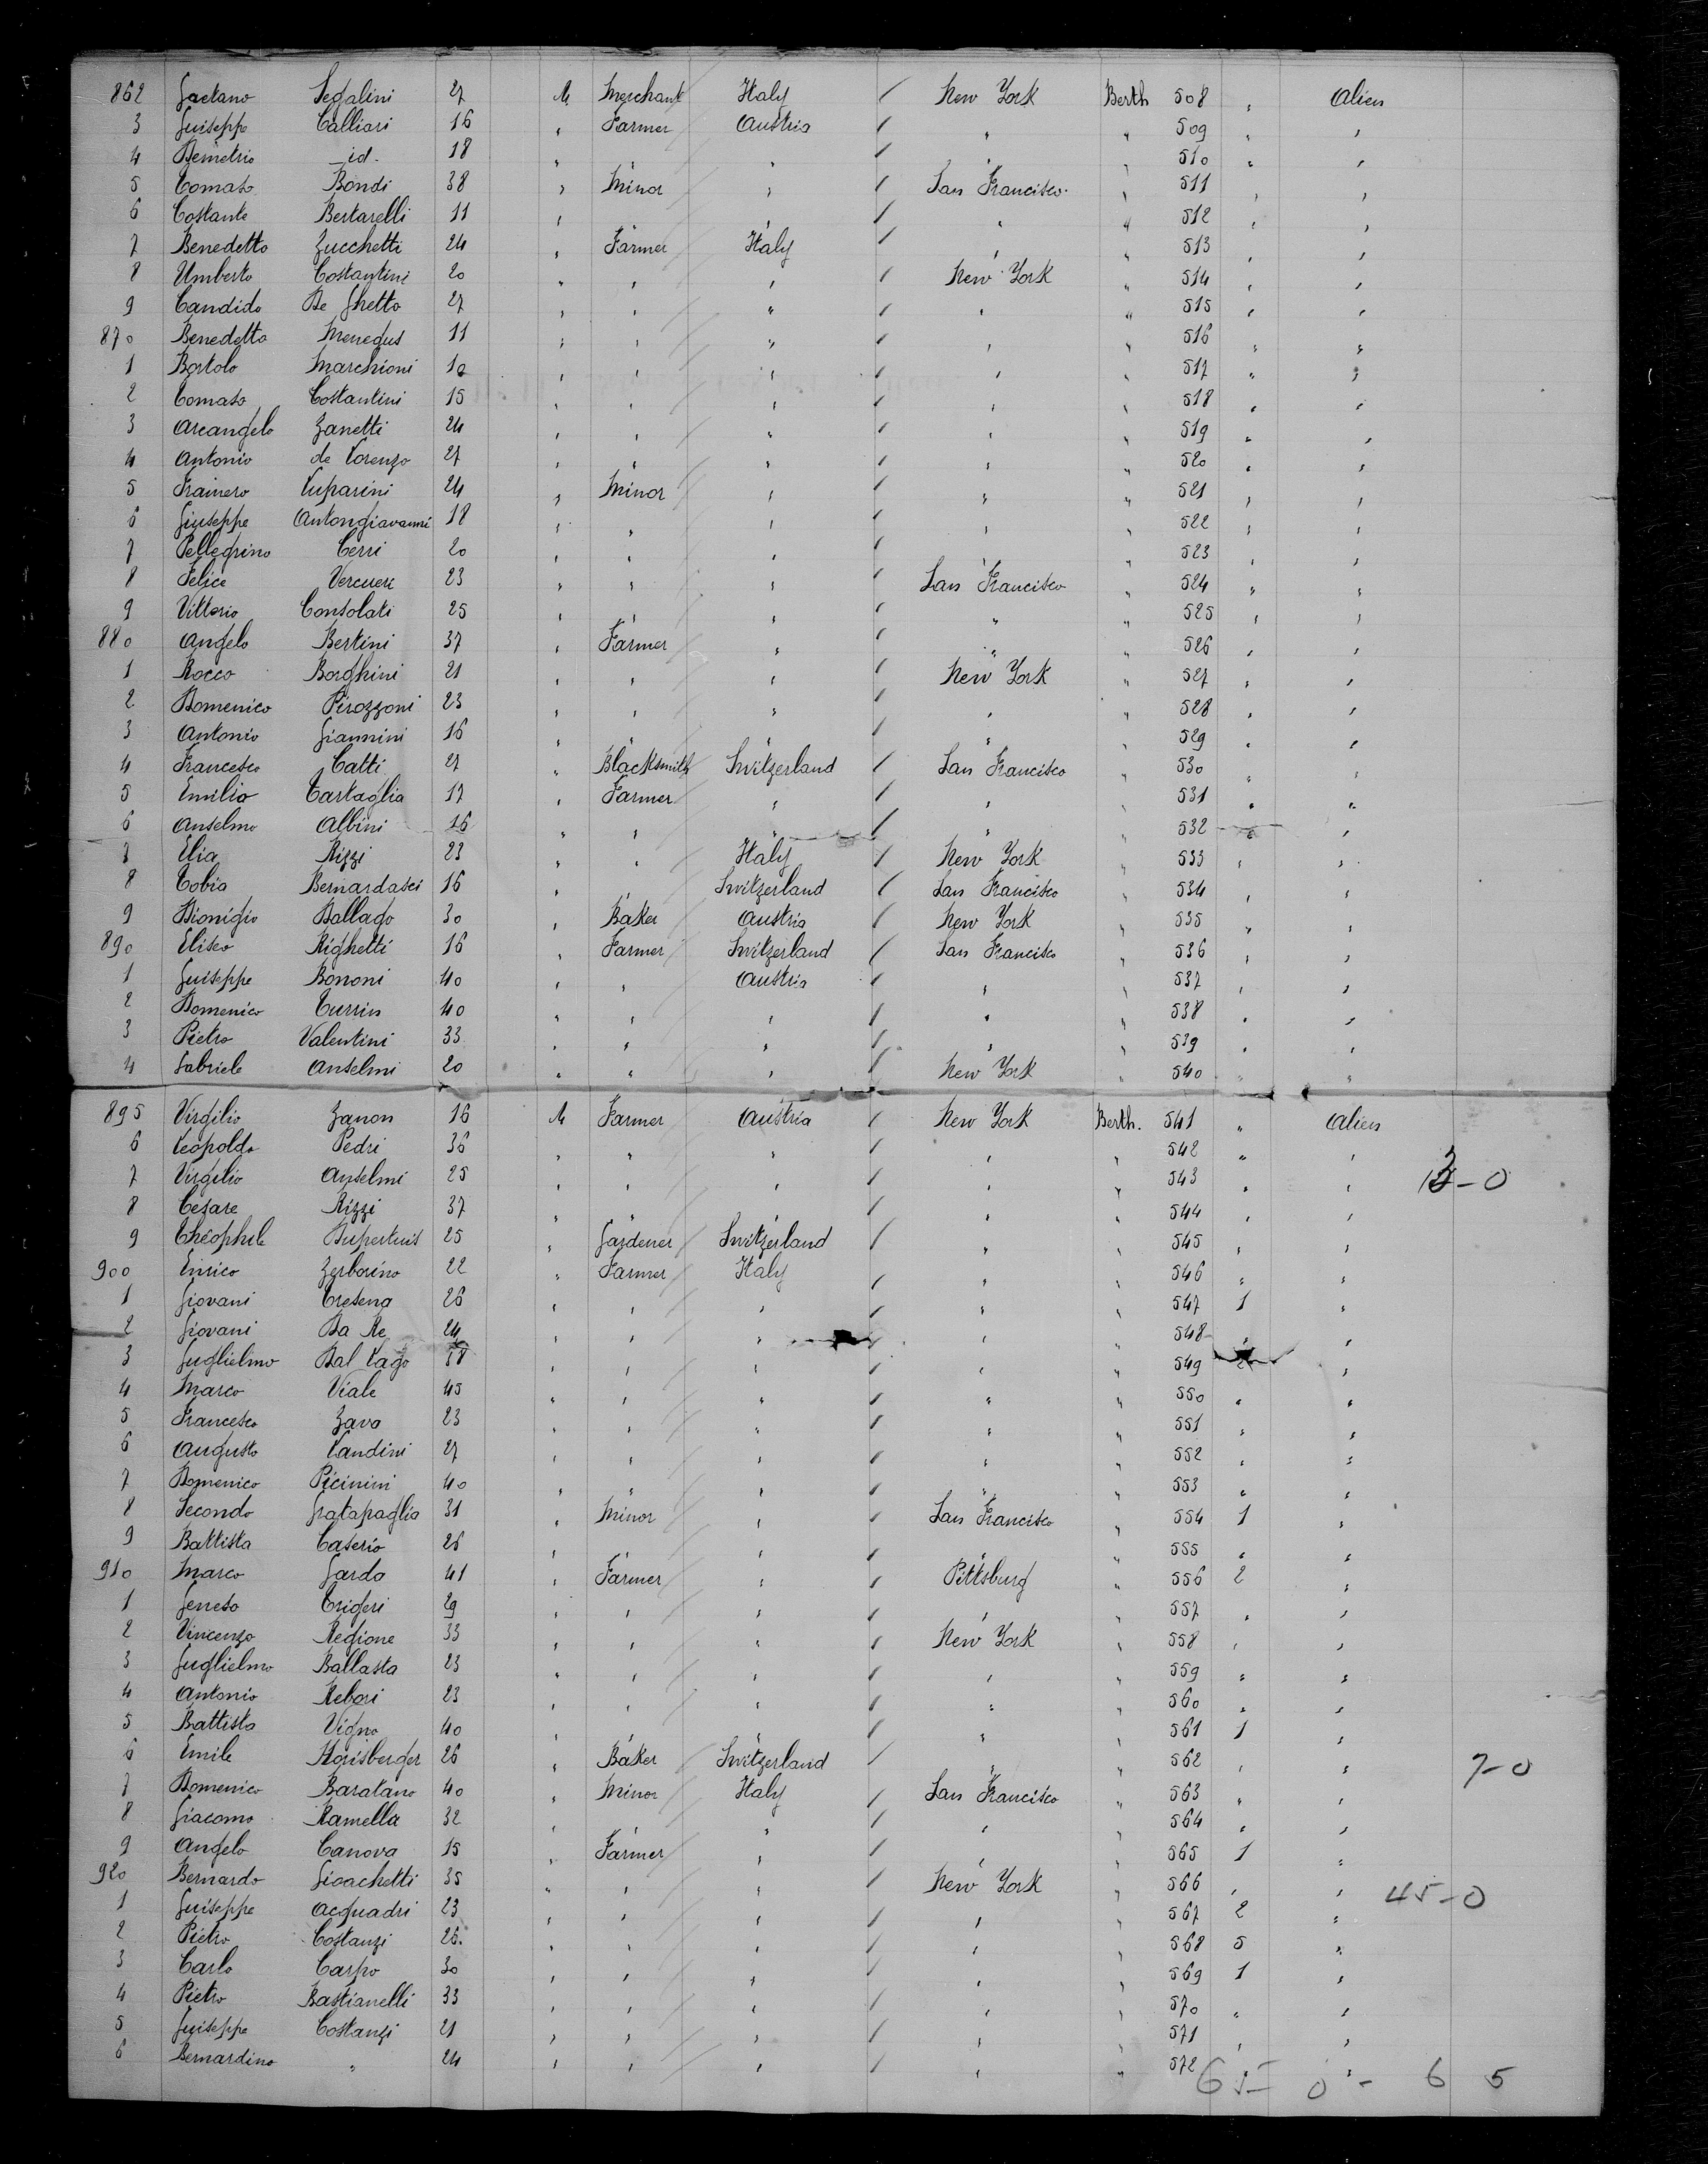 862 Gaetano Segalini 27 M Merchant Italy / New York Berth 508 " Alien
3 Guiseppe Calliari 16 " Farmer Austria / " " 509 " "
4 Demetrio _id. 18 " " " / " " 510 " "
5 Tomaso Bondi 38 " Minor " / San Francisco. " 511 " "
6 Costante Bertarelli 11 " " " / " " 512 " "
7 Benedetto Zucchetti 24 " Farmer Italy / " " 513 " "
8 Umberto Costantini 20 " " " / New York " 514 " "
9 Candido De Ghetto 27 " " " / " " 515 " "
870 Benedetto Menegus 11 " " " / " " 516 " "
1 Bortolo Marchioni 10 " " " / " " 517 " "
2 Tomaso Costantini 15 " " " / " " 518 " "
3 Arcangelo Zanetti 24 " " " / " " 519 " "
4 Antonio de Lorenzo 27 " " " / " " 520 " "
5 Frainero Luparini 24 " Minor " / " " 521 " "
6 Giuseppe Antongiavanni 18 " " " / " " 522 " "
7 Pellegrino Cerri 20 " " " / " " 523 " "
8 Felice Vercuere 23 " " " / San Francisco " 524 " "
9 Vittorio Consolati 25 " " " / " " 525 " "
880 Angelo Bertini 37 " Farmer " " " 526 " "
1 Rocco Borghini 21 " " " / New York " 527 " "
2 Domenico Pirozzoni 23 " " " / " " 528 " "
3 Antonio Giannini 16 " " " / " " 529 " "
4 Francesco Catti 27 " Blacksmith Switzerland / San Francisco " 530 " "
5 Emilio Tartaglia 17 " Farmer " / " " 531 " "
6 Anselmo Albini 16 " " " / " " 532 " "
7 Elia Rizzi 23 " " Italy / New York " 533 " "
8 Tobia Bernardasci 16 " " Switzerland / San Francisco " 534 " "
9 Dionigio Dallago 30 " Baker Austria / New York " 535 " "
890 Eliseo Righetti 16 " Farmer Switzerland / San Francisco " 536 " "
1 Guiseppe Bononi 40 " " Austria / " " 537 " "
2 Domenico Turrin 40 " " " / " " 538 " "
3 Pietro Valentini 33 " " " / " " 539 " "
4 Gabriele Anselmi 20 " " " / New York " 540 " "
895 Virgilio Zanon 16 M Farmer Austria / New York Berth. 541 " Alien
6 Leopoldo Pedri 36 " " " / " " 542 " "
7 Virgilio Anselmi 25 " " " / " " 543 " " 13-0
8 Cesare Rizzi 37 " " " / " " 544 " "
9 Théophile Dupertuis 25 " Gardener Switzerland / " " 545 " "
900 Enrico Zerborino 22 " Farmer Italy / " " 546 " "
1 Giovani Cresena 26 " " " / " " 547 1 "
2 Giovani Da Re 24 " " " / " " 548 " "
3 Guglielmo Dal Lago 38 " " " / " " 549 "
4 Marco Viale 45 " " " / " " 550 " "
5 Francesco Zava 23 " " " / " " 551 " "
6 Augusto Landini 27 " " " / " " 552 " "
7 Domenico Picinini 40 " " " / " " 553 " "
8 Secondo Gratapaglia 31 " Minor " / San Francisco " 554 1 "
9 Battista Caserio 26 " " " / " " 555 " "
910 Marco Garda 41 " Farmer " / Pittsburg " 556 2 "
1 Geneso Crigeri 29 " " " / " " 557 " "
2 Vincenzo Regione 33 " " " / New York " 558 " "
3 Guglielmo Ballasta 23 " " " / " " 559 " "
4 Antonio Rebori 23 " " " / " " 560 " "
5 Battista Vigna 40 " " " / " " 561 1 "
6 Emile Horisberger 26 " Baker Switzerland / " " 562 " " 7-0
7 Domenico Baratano 40 " Minor Italy / San Francisco " 563 " "
8 Giacomo Ramella 32 " " " / " " 564 " "
9 Angelo Canova 15 " Farmer " / " " 565 1 "
920 Bernardo Gioachetti 35 " " " / New York " 566 " " 45-0
1 Guiseppe Acquadri 23 " " " / " " 567 2 "
2 Pietro Costanzi 26. " " " / " " 568 5 "
3 Carlo Carpo 30 " " " / " " 569 1 "
4 Pietro Bastianelli 33 " " " / " " 570 " "
5 Guiseppe Costanzi 21 " " " / " " 571 " "
6 Bernardino " 24 " " " / " " 572 " "
65- 0 - 6 5